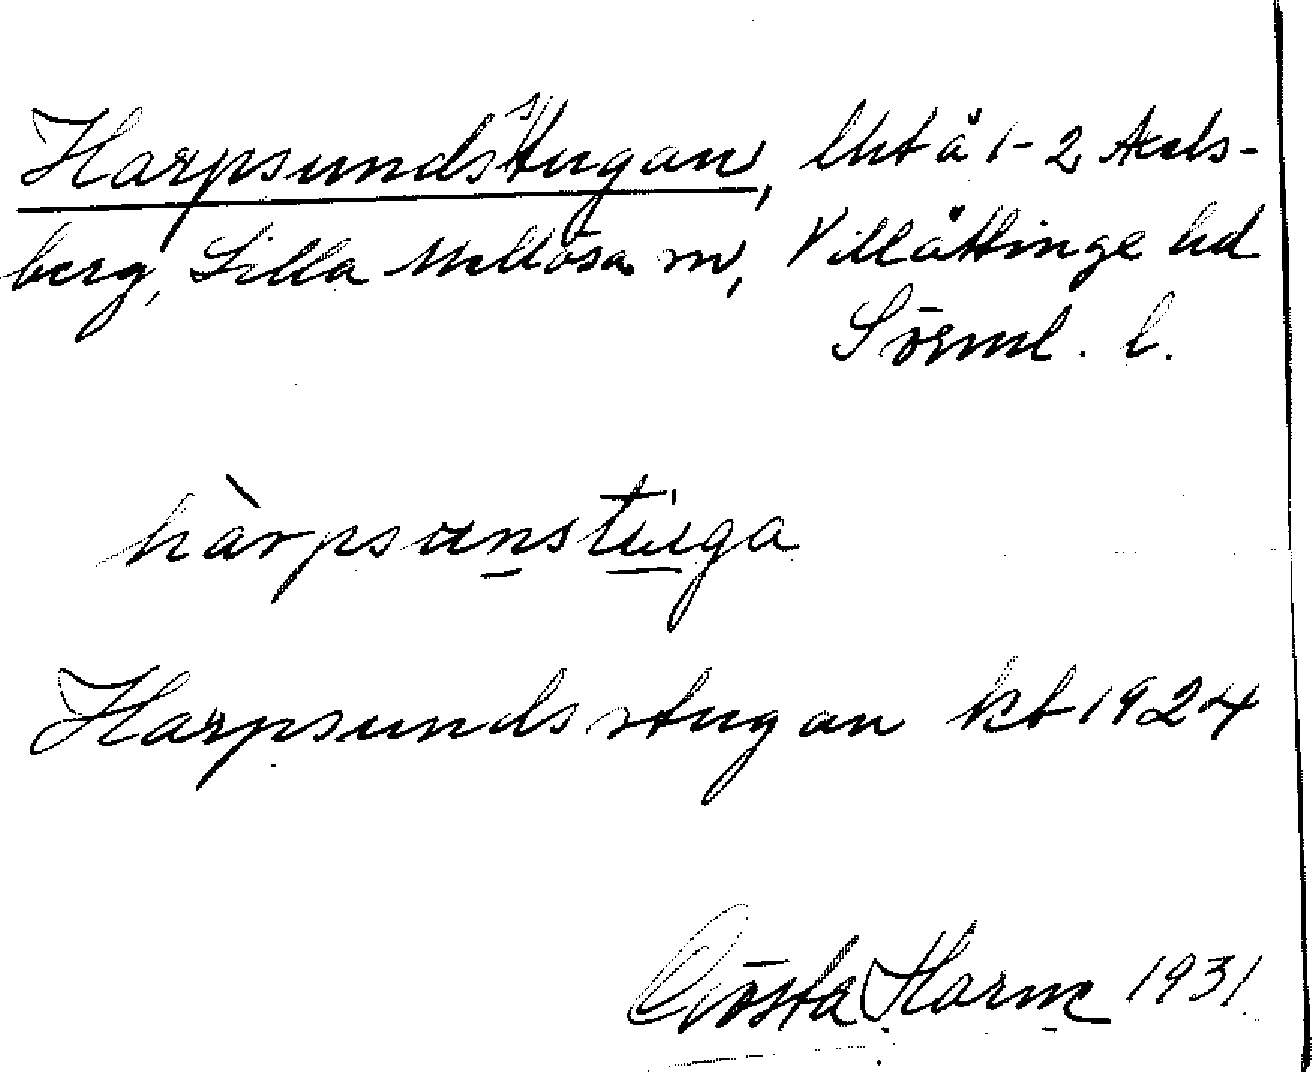 Harpsundsstugan, lht å 1-2 Axels-
berg, Lilla Mellösa sn, Villåttinge hd
Sörml. l.
hàrpsunstuga
Harpsundsstugan kt 1924
Gösta Harm 1931